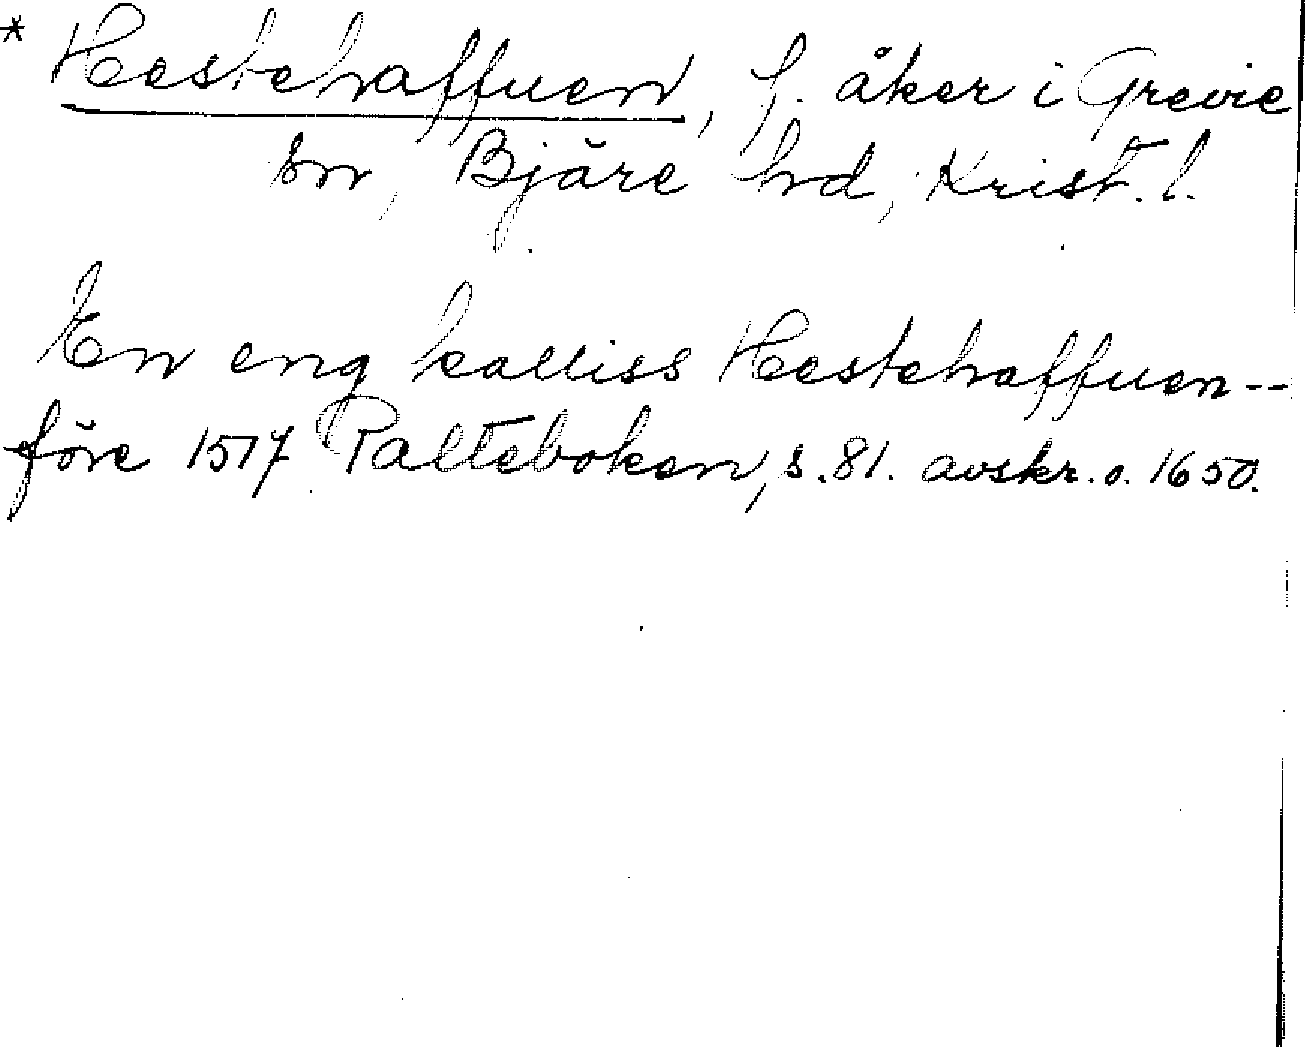 * Hestehaffuen, f. åker i Grevie
sn, Bjäre hd, Krist. l.
En eng kalliss Hestehaffuen--
före 1517 Palteboken, s. 81. avskr. o. 1650.